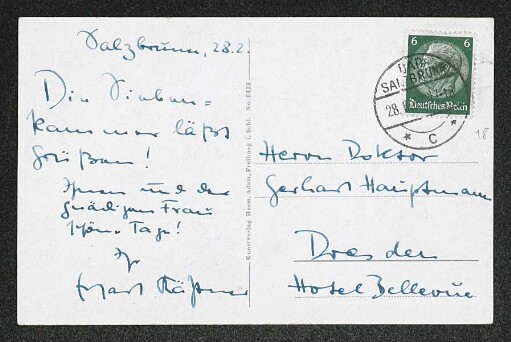 Salzbrunn, 28.2.
Die Sieben=
kammer läßt
grüßen!
Ihnen und der
gnädigen Frau
schöne Tage!
Ihr
Erhart Kästner
Kunstverlag Herm. Adam, Freiburg i. Schl. No. 6428
6 6
Deutsches Reich
BAD
SALZBRUNN
28.
* C *
18
Herrn Doktor
Gerhart Hauptmann
Dresden
Hotel Bellevue